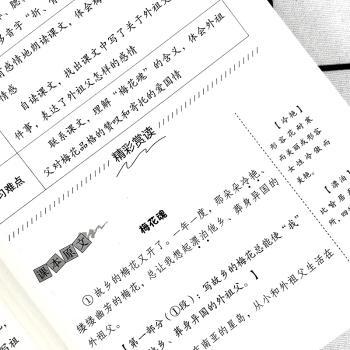 音字"折"
感情地朗读课文,体会
情感
自读课文,找出课文中写了关于外祖父
件事,表达了外祖父怎样的感情
联系课文,理解"梅花魂"的含义,体会外祖
父对梅花品格的赞叹和寄托的爱国情
习难点
精彩赏读
课本原文
梅花魂
①故乡的梅花又开了。一年一度,那朵朵冷艳、
缕缕幽芳的梅花,总让我想起漂泊他乡、葬身异国的
外祖父。
【第一部分(①段):写故乡的梅花总能使"我"
他乡、葬身异国的外祖父。】
东南亚的星岛,从小和外祖父生活在
【冷艳】
形容花耐寒
而美丽或形容
女性冷傲而
美艳。
【漂泊】